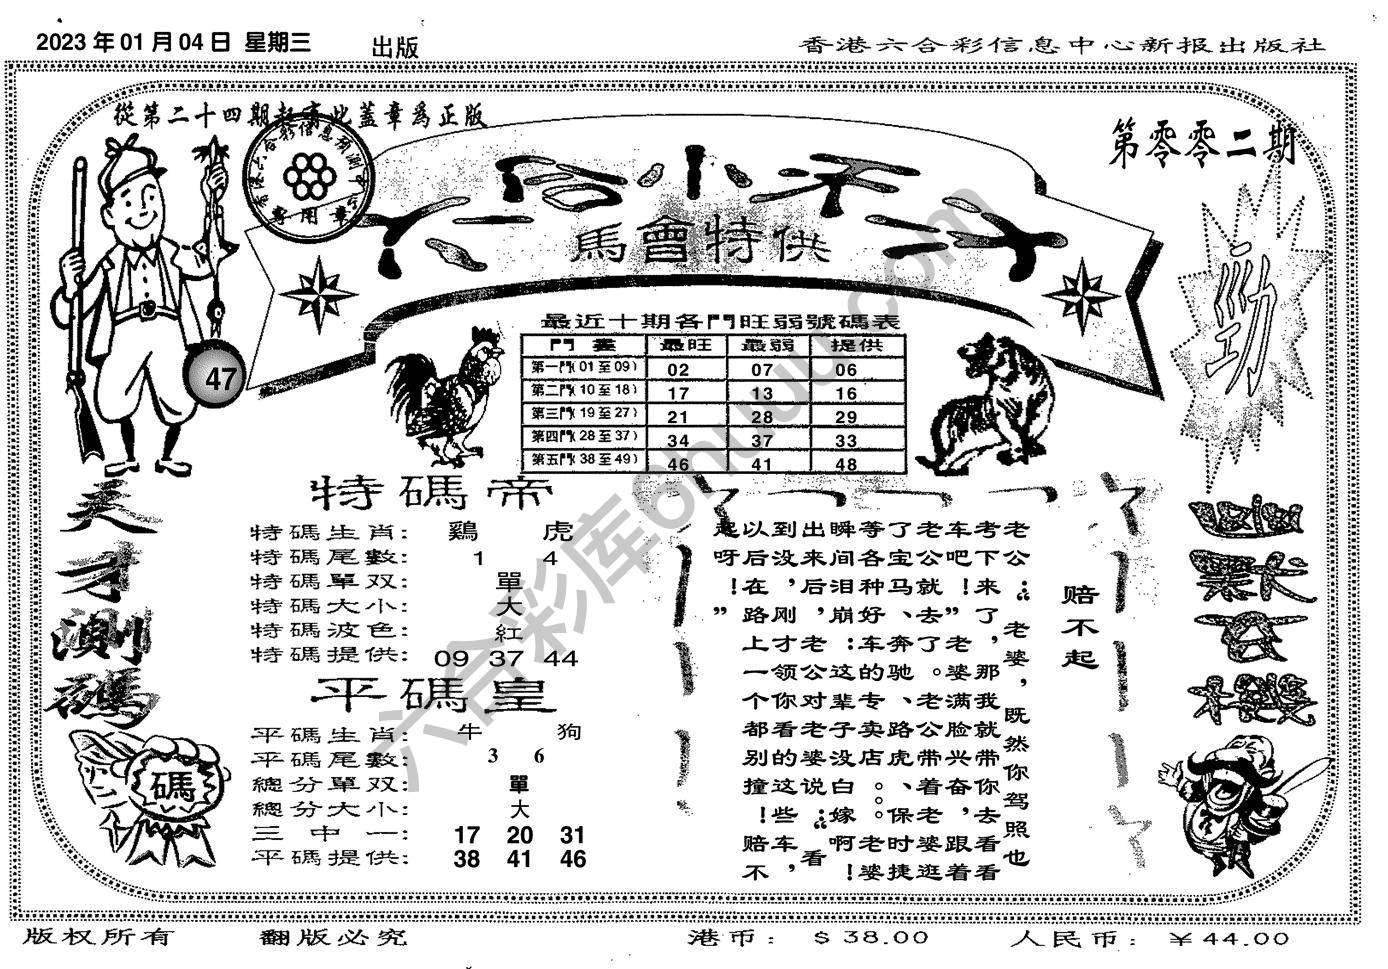 2023 年 01 月 04 日 星期三
出版
香港六合彩信息中心新报出版社
從第二十四期起有此蓋章爲正版
香港六合彩信息預測中心
專用章
第零零二期
六合小天才
馬會特供
勁
47
最近十期各門旺弱號碼表
門 最旺 最弱 提供
第一門(01至09) 02 07 06
第二門(10至18) 17 13 16
第三門(19至27) 21 28 29
第四門(28至37) 34 37 33
第五門(38至49) 46 41 48
天才測碼
碼
特碼帝
特碼生肖: 鷄 虎
特碼尾數: 1 4
特碼單双: 單
特碼大小: 大
特碼波色: 紅
特碼提供: 09 37 44
平碼皇
平碼生肖: 牛 狗
平碼尾數: 3 6
總分單双: 單
總分大小: 大
三中一: 17 20 31
平碼提供: 38 41 46
赔不起
老公:“老婆,既然你驾照也
考下来了,那我就带你去看看
车吧!”老婆满脸兴奋,跟着
老公就去了。老公带着老婆逛
了宝马、奔驰、路虎、保时捷
等各种好车的专卖店。。老婆
瞬间泪崩:这辈子没白嫁啊!
出来后,老公对老婆说:“看
到没,刚才领你看的这些车,
以后在路上一个都别撞!赔不
起呀!”
六合彩库6huuu.com
版权所有 翻版必究 港币: $38.00 人民币: ¥44.00